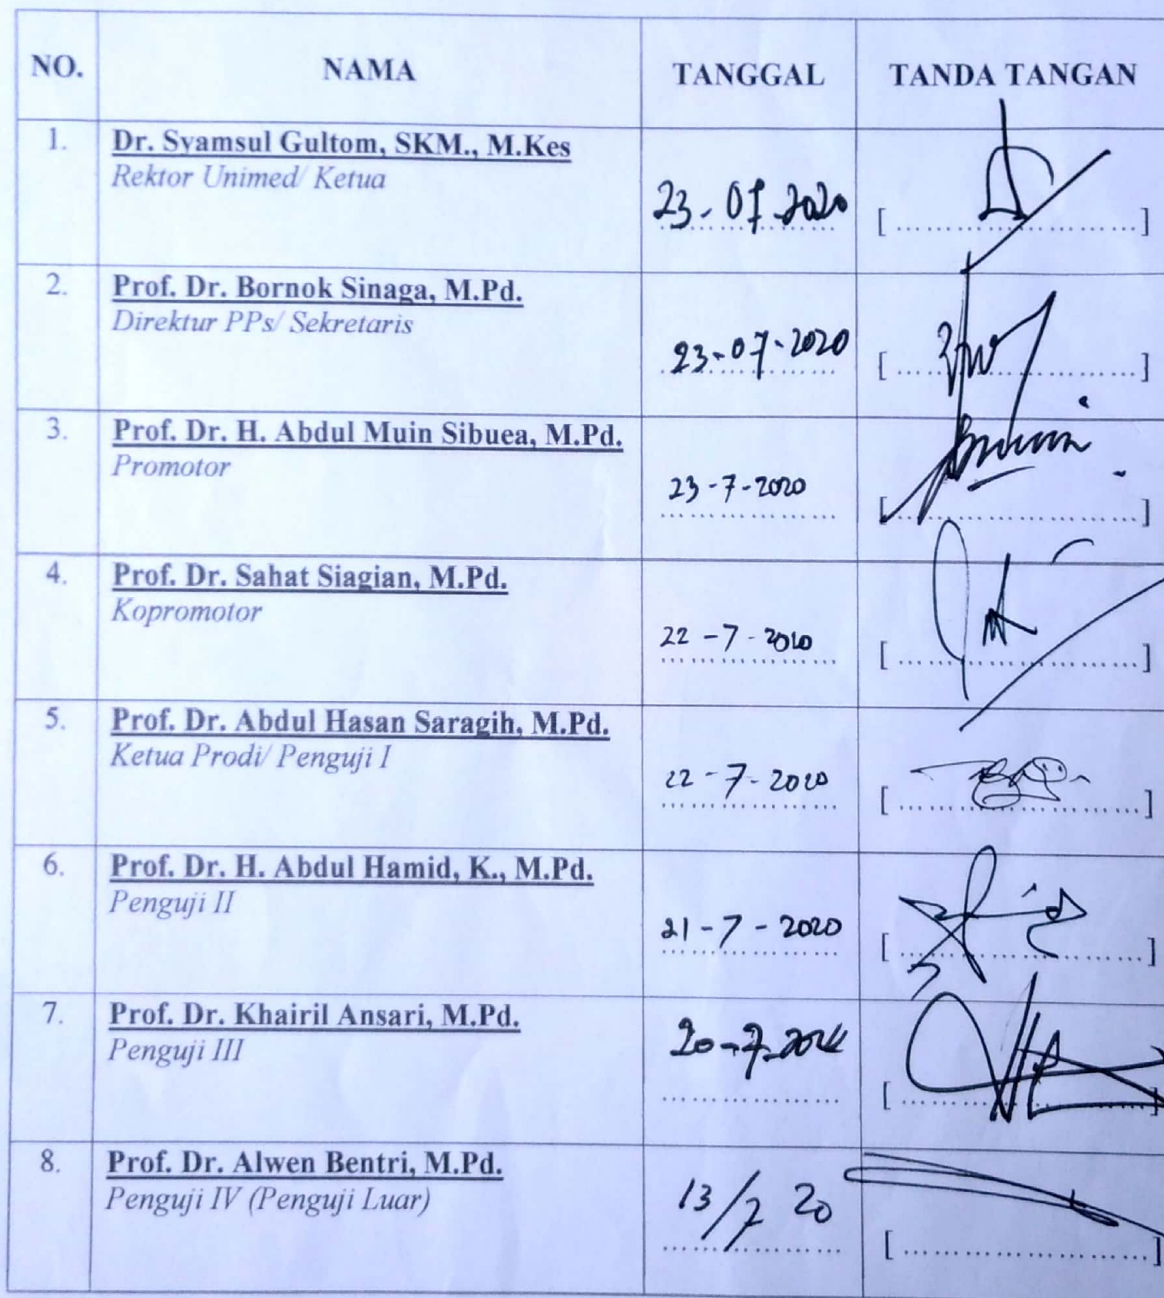 NO. NAMA TANGGAL TANDA TANGAN
1. Dr. Syamsul Gultom, SKM., M.Kes
Rektor Unimed/ Ketua
23-07-2020 [ ........................ ]
2. Prof. Dr. Bornok Sinaga, M.Pd.
Direktur PPs/ Sekretaris
23-07-2020 [ ........................ ]
3. Prof. Dr. H. Abdul Muin Sibuea, M.Pd.
Promotor
23-7-2020 [ ........................ ]
4. Prof. Dr. Sahat Siagian, M.Pd.
Kopromotor
22-7-2020 [ ........................ ]
5. Prof. Dr. Abdul Hasan Saragih, M.Pd.
Ketua Prodi/ Penguji I
22-7-2020 [ ........................ ]
6. Prof. Dr. H. Abdul Hamid, K., M.Pd.
Penguji II
21-7-2020 [ ........................ ]
7. Prof. Dr. Khairil Ansari, M.Pd.
Penguji III
[ ........................ ]
8. Prof. Dr. Alwen Bentri, M.Pd.
Penguji IV (Penguji Luar)
13/7 20
[ ........................ ]